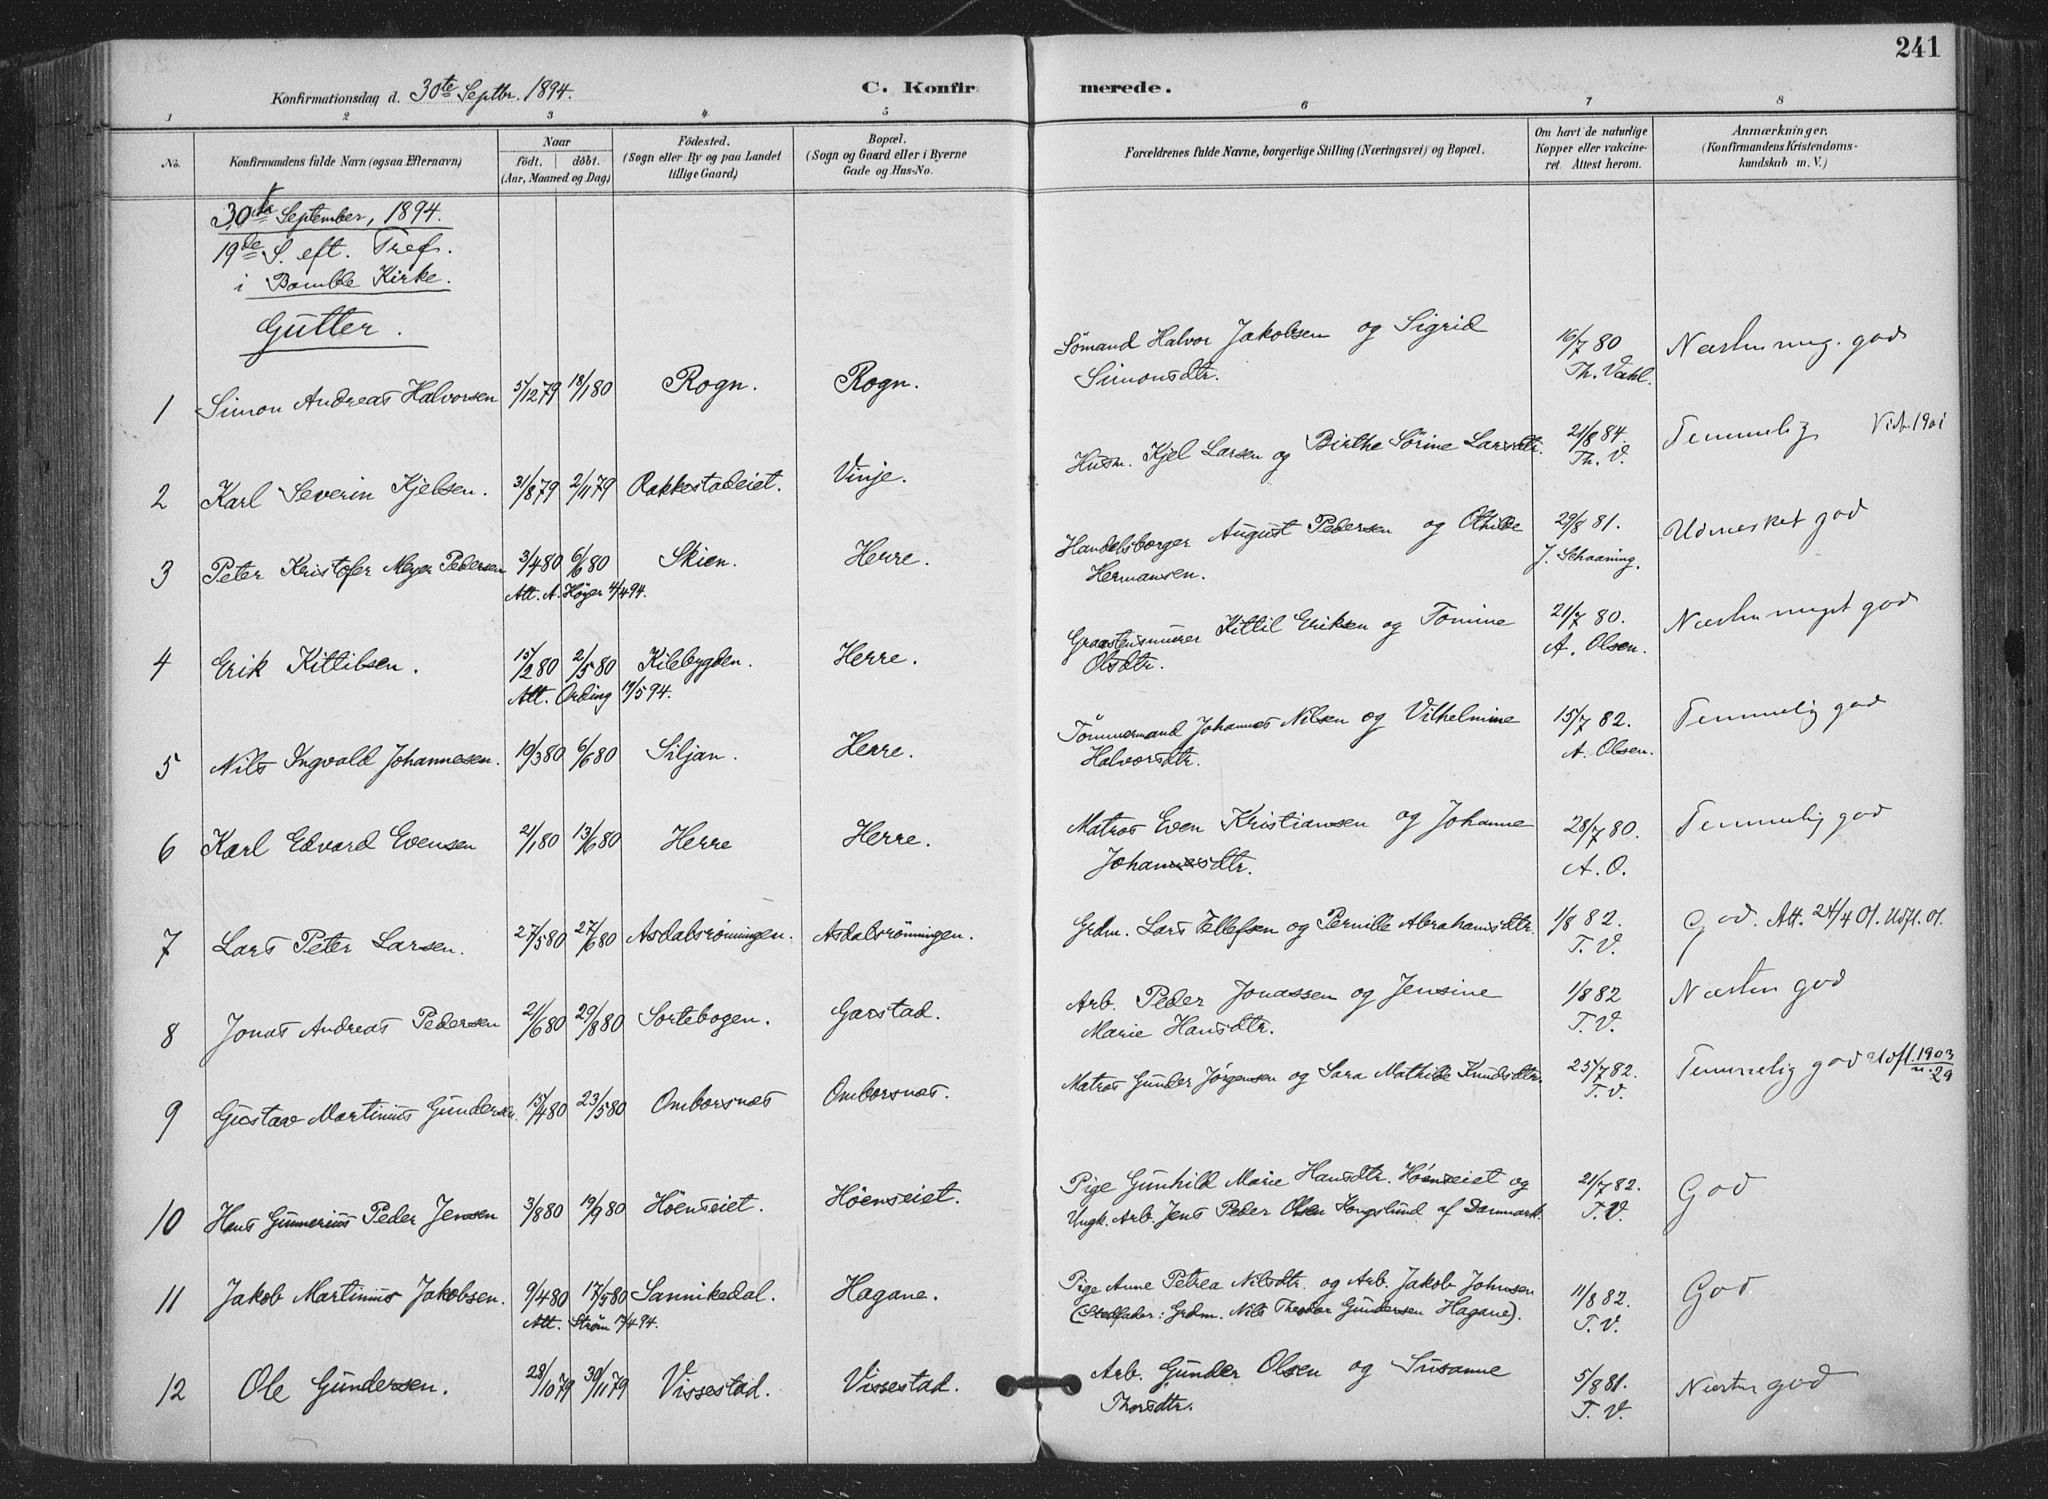 241
Konfirmationsdag d. 30te Septbr. 1894.
C. Konfirmerede.
1 2 3 4 5 6 7 8
No. Konfirmandens fulde Navn (ogsaa Efternavn) Naar födt. döbt. (Aar, Maaned og Dag) Födested. (Sogn eller By og paa Landet tillige Gaard) Bopæl. (Sogn og Gaard eller i Byerne Gade og Hus-No. Forældrenes fulde Navne, borgerlige Stilling (Næringsvei) og Bopæl. Om havt de naturlige Kopper eller vakcineret. Attest herom. Anmærkninger. (Konfirmandens Kristendomskundskab m. V.)
30te September, 1894.
19de S. eft. Tref.
i Bamble Kirke.
Gutter.
1 Simon Andreas Halvorsen 5/12 79 18/1 80 Rogn. Rogn. Sømand Halvor Jakobsen og Sigrid
Simonsdtr. 16/7 80 Th. Vahl. Næsten meg. god
2 Karl Severin Kjelsen. 31/8 79 2/11 79 Rakkestadeiet. Vinje. Husm. Kjel Larsen og Birthe Sørine Larsdtr. 21/8 84. Th. V. Temmelig 1901
3 Peter Kristofer Meyer Pedersen 3/4 80 6/6 80 Skien. Herre. Handelsborger August Pedersen og Othilde
Hermansen. 29/8 81. J. Schaaning. Udmerket god
Att. A. Höyer 4/4 94.
4 Erik Kittilsen. 15/2 80 2/5 80 Kilebygden. Herre. Graastensmurer Kittil Eriksen og Tomine
Olsdtr. 21/7 80. A. Olsen. Næsten meget god
Att. Ording /5 94.
5 Nils Ingvald Johannesen. 19/3 80 6/6 80 Siljan. Herre. Tömmermand Johannes Nilsen og Vilhelmine
Halvorsdtr. 15/7 82. A. Olsen. Temmelig god
6 Karl Edvard Evensen 21/1 80 13/6 80 Herre Herre. Matros Even Kristiansen og Johanne
Johannesdtr. 28/7 80. A. O. Temmelig god
7 Lars Peter Larsen. 27/5 80 27/6 80 Asdalsrønningen. Asdalsrönningen. Grdm. Lars Tellefsen og Pernille Abrahamsdtr. 1/8 82. T. V. God. Att. 24/4 01. Udfl. 01.
8 Jonas Andreas Pedersen 21/6 80 29/8 80 Sortebogen. Garstad. Arb. Peder Jonassen og Jensine
Marie Hansdtr. 1/8 82 T. V. Næsten god
9 Gustav Martinius Gundersen. 15/4 80 23/5 80 Omborsnæs Omborsnæs. Matros Gunder Jörgensen og Sara Mathilde Knudsdtr. 25/7 82. T. V. Temmelig god Udfl. 1903
10 Hans Gunnerius Peder Jensen 3/8 80 19/9 80 Höenseiet. Höenseiet. Pige Gunhild Marie Hansdtr. Höenseiet og
Ungk. Arb. Jens Peder Olsen Kongslund af Danmark. 21/7 82. T. V. God
11 Jakob Martinius Jakobsen. 9/4 80 17/5 80 Sannikedal. Hagane. Pige Anne Petrea Nilsdtr. og Arb. Jakob Johnsen
(Stedfader: Grdm. Nils Theodor Gundersen Hagane). 11/8 82. T. V. God
Att. Strøm 17/4 94.
12 Ole Gundersen. 28/10 79 30/11 79 Vissestad. Vissestad. Arb. Gunder Olsen og Susanne
Thorsdtr. 5/8 81. T. V. Næsten god